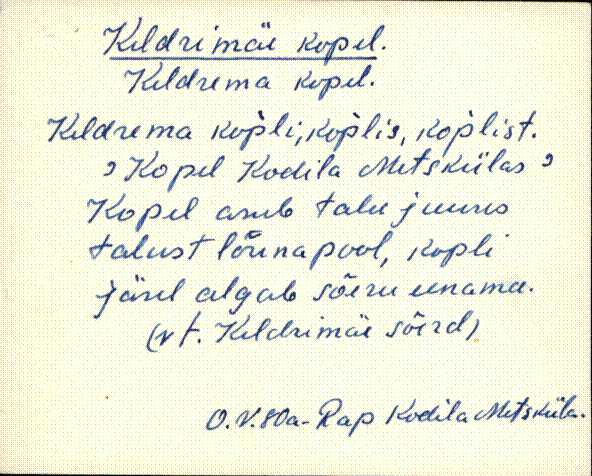 Keldrimäe kopel.
Keldrema kopel.
Keldrema kop̀li, kop̀lis, kop̀list.
? Kopel Kodila Metskülas ?
Kopel asub talu juures
talust lõunapool, kopli
järel algab sõeru eenama.
(vt. Keldrimäe sõerd)
O.V. 80a - Rap Kodila Metsküla.